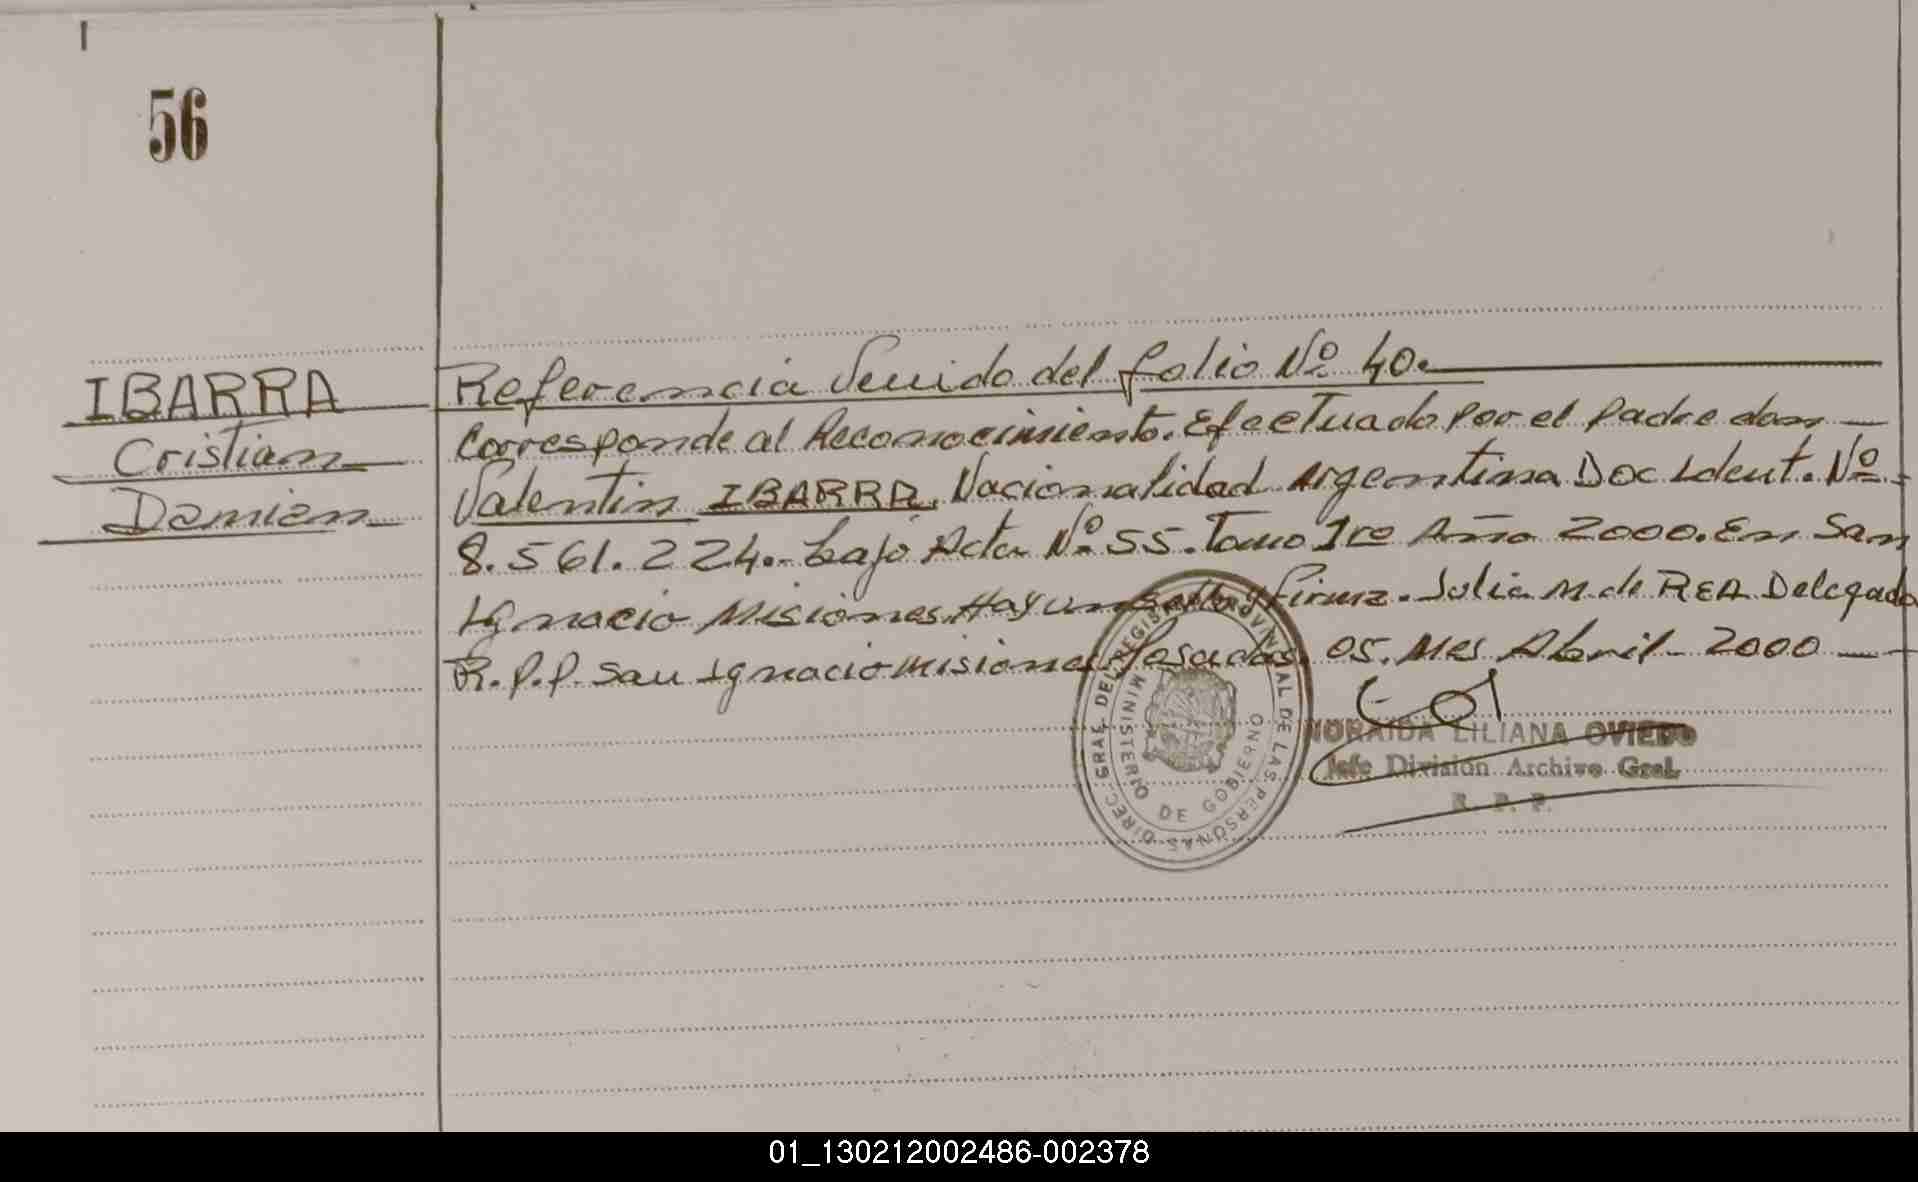 56
IBARRA
Cristian
Damian
Referencia Venido del folio Nº 40.
Corresponde al Reconocimiento. Efectuado por el padre don
Valentin IBARRA, Nacionalidad Argentina Doc Ident. Nº
8.561.224.- bajo Acta Nº 55. Tomo 1ro Año 2000. En San
Ignacio Misiones. Hay un sello y Firma. Julia M. de REA Delegado
R.P.P. San Ignacio Misiones Posadas, 05. Mes Abril - 2000
DIREC. GRAL. DEL REGISTRO PROVINCIAL DE LAS PERSONAS
MINISTERIO DE GOBIERNO
NORAIDA LILIANA OVIEDO
Jefe División Archivo Gral.
R. P. P.
01_130212002486-002378